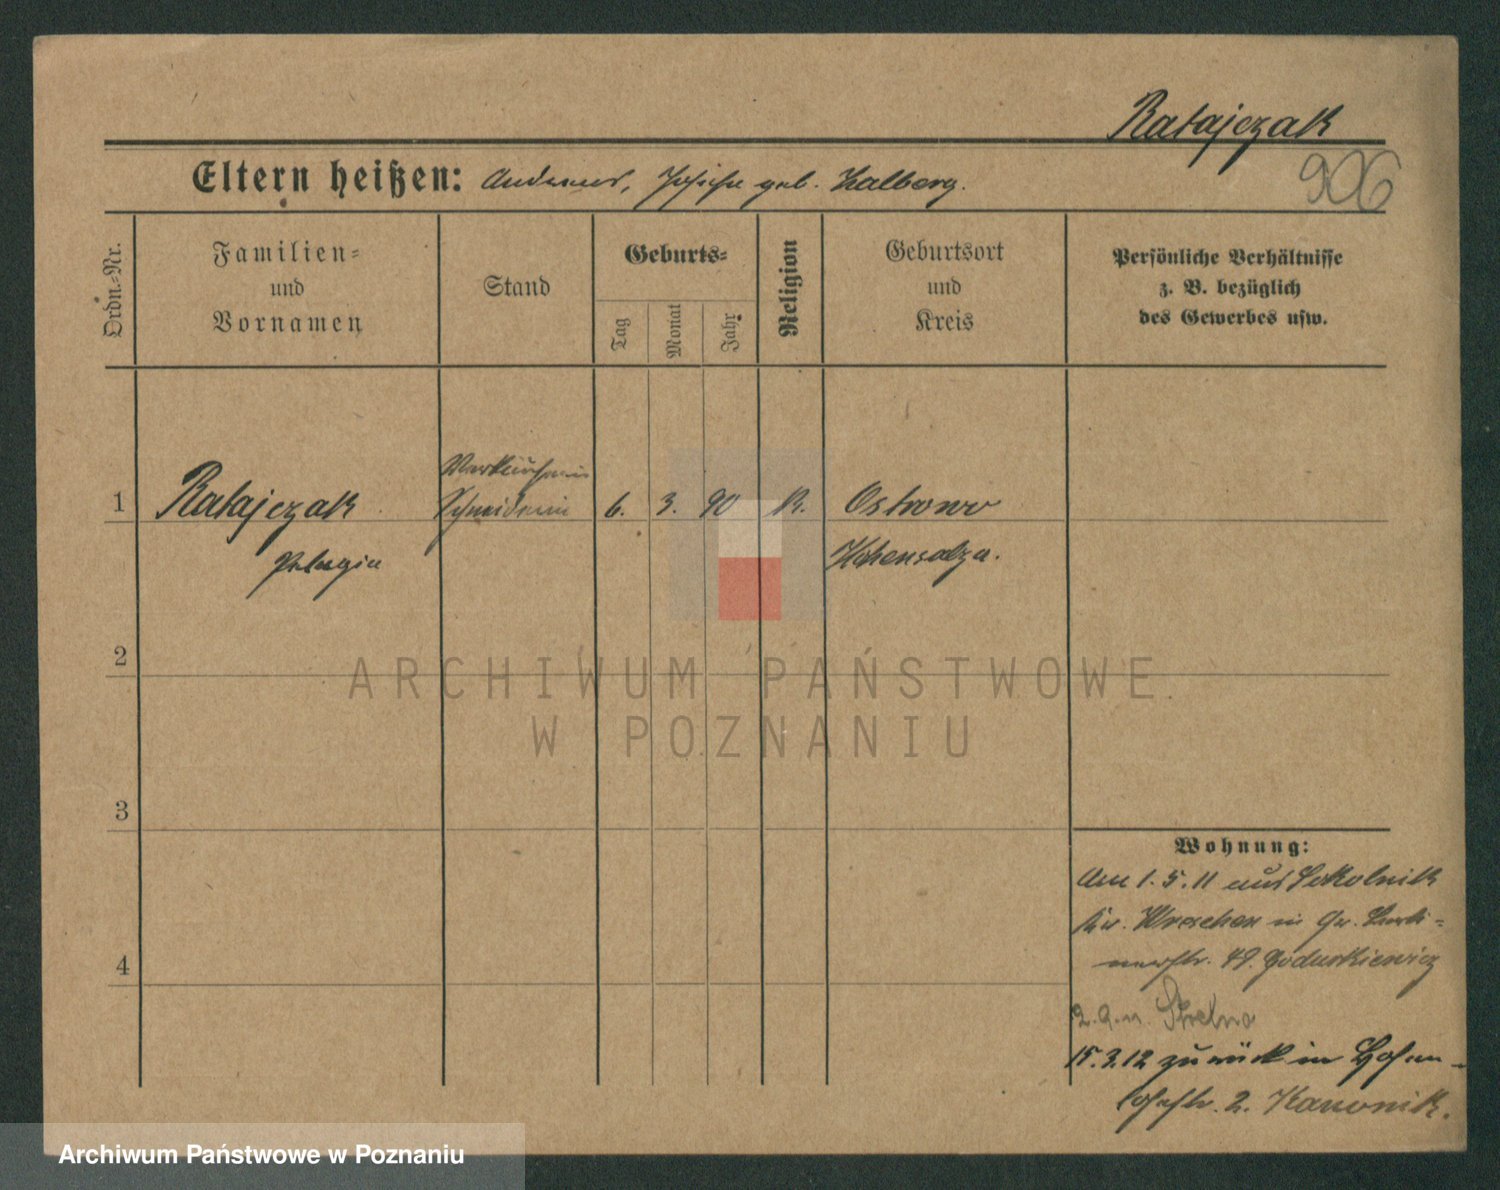 Ratajczak
906
Eltern heißen: Andreas, geb. Kalberg.
Ordn.=Nr.
Familien=
und
Vornamen
Stand
Geburts=
Tag
Monat
Jahr
Religion
Geburtsort
und
Kreis
Persönliche Verhältnisse
z. B. bezüglich
des Gewerbes usw.
Verkäuferin
1 Ratajczak Schneiderin 6. 3. 90 K. Ostrowo
Pelagia Hohensalza.
2
3
4
ARCHIWUM PAŃSTWOWE
W POZNANIU
Wohnung:
Am 1.5.11 aus Sokolnik
Kr. Wreschen in Gr.
49.
Strelno
15.3.12 zurück in
2. Kanonik.
Archiwum Państwowe w Poznaniu